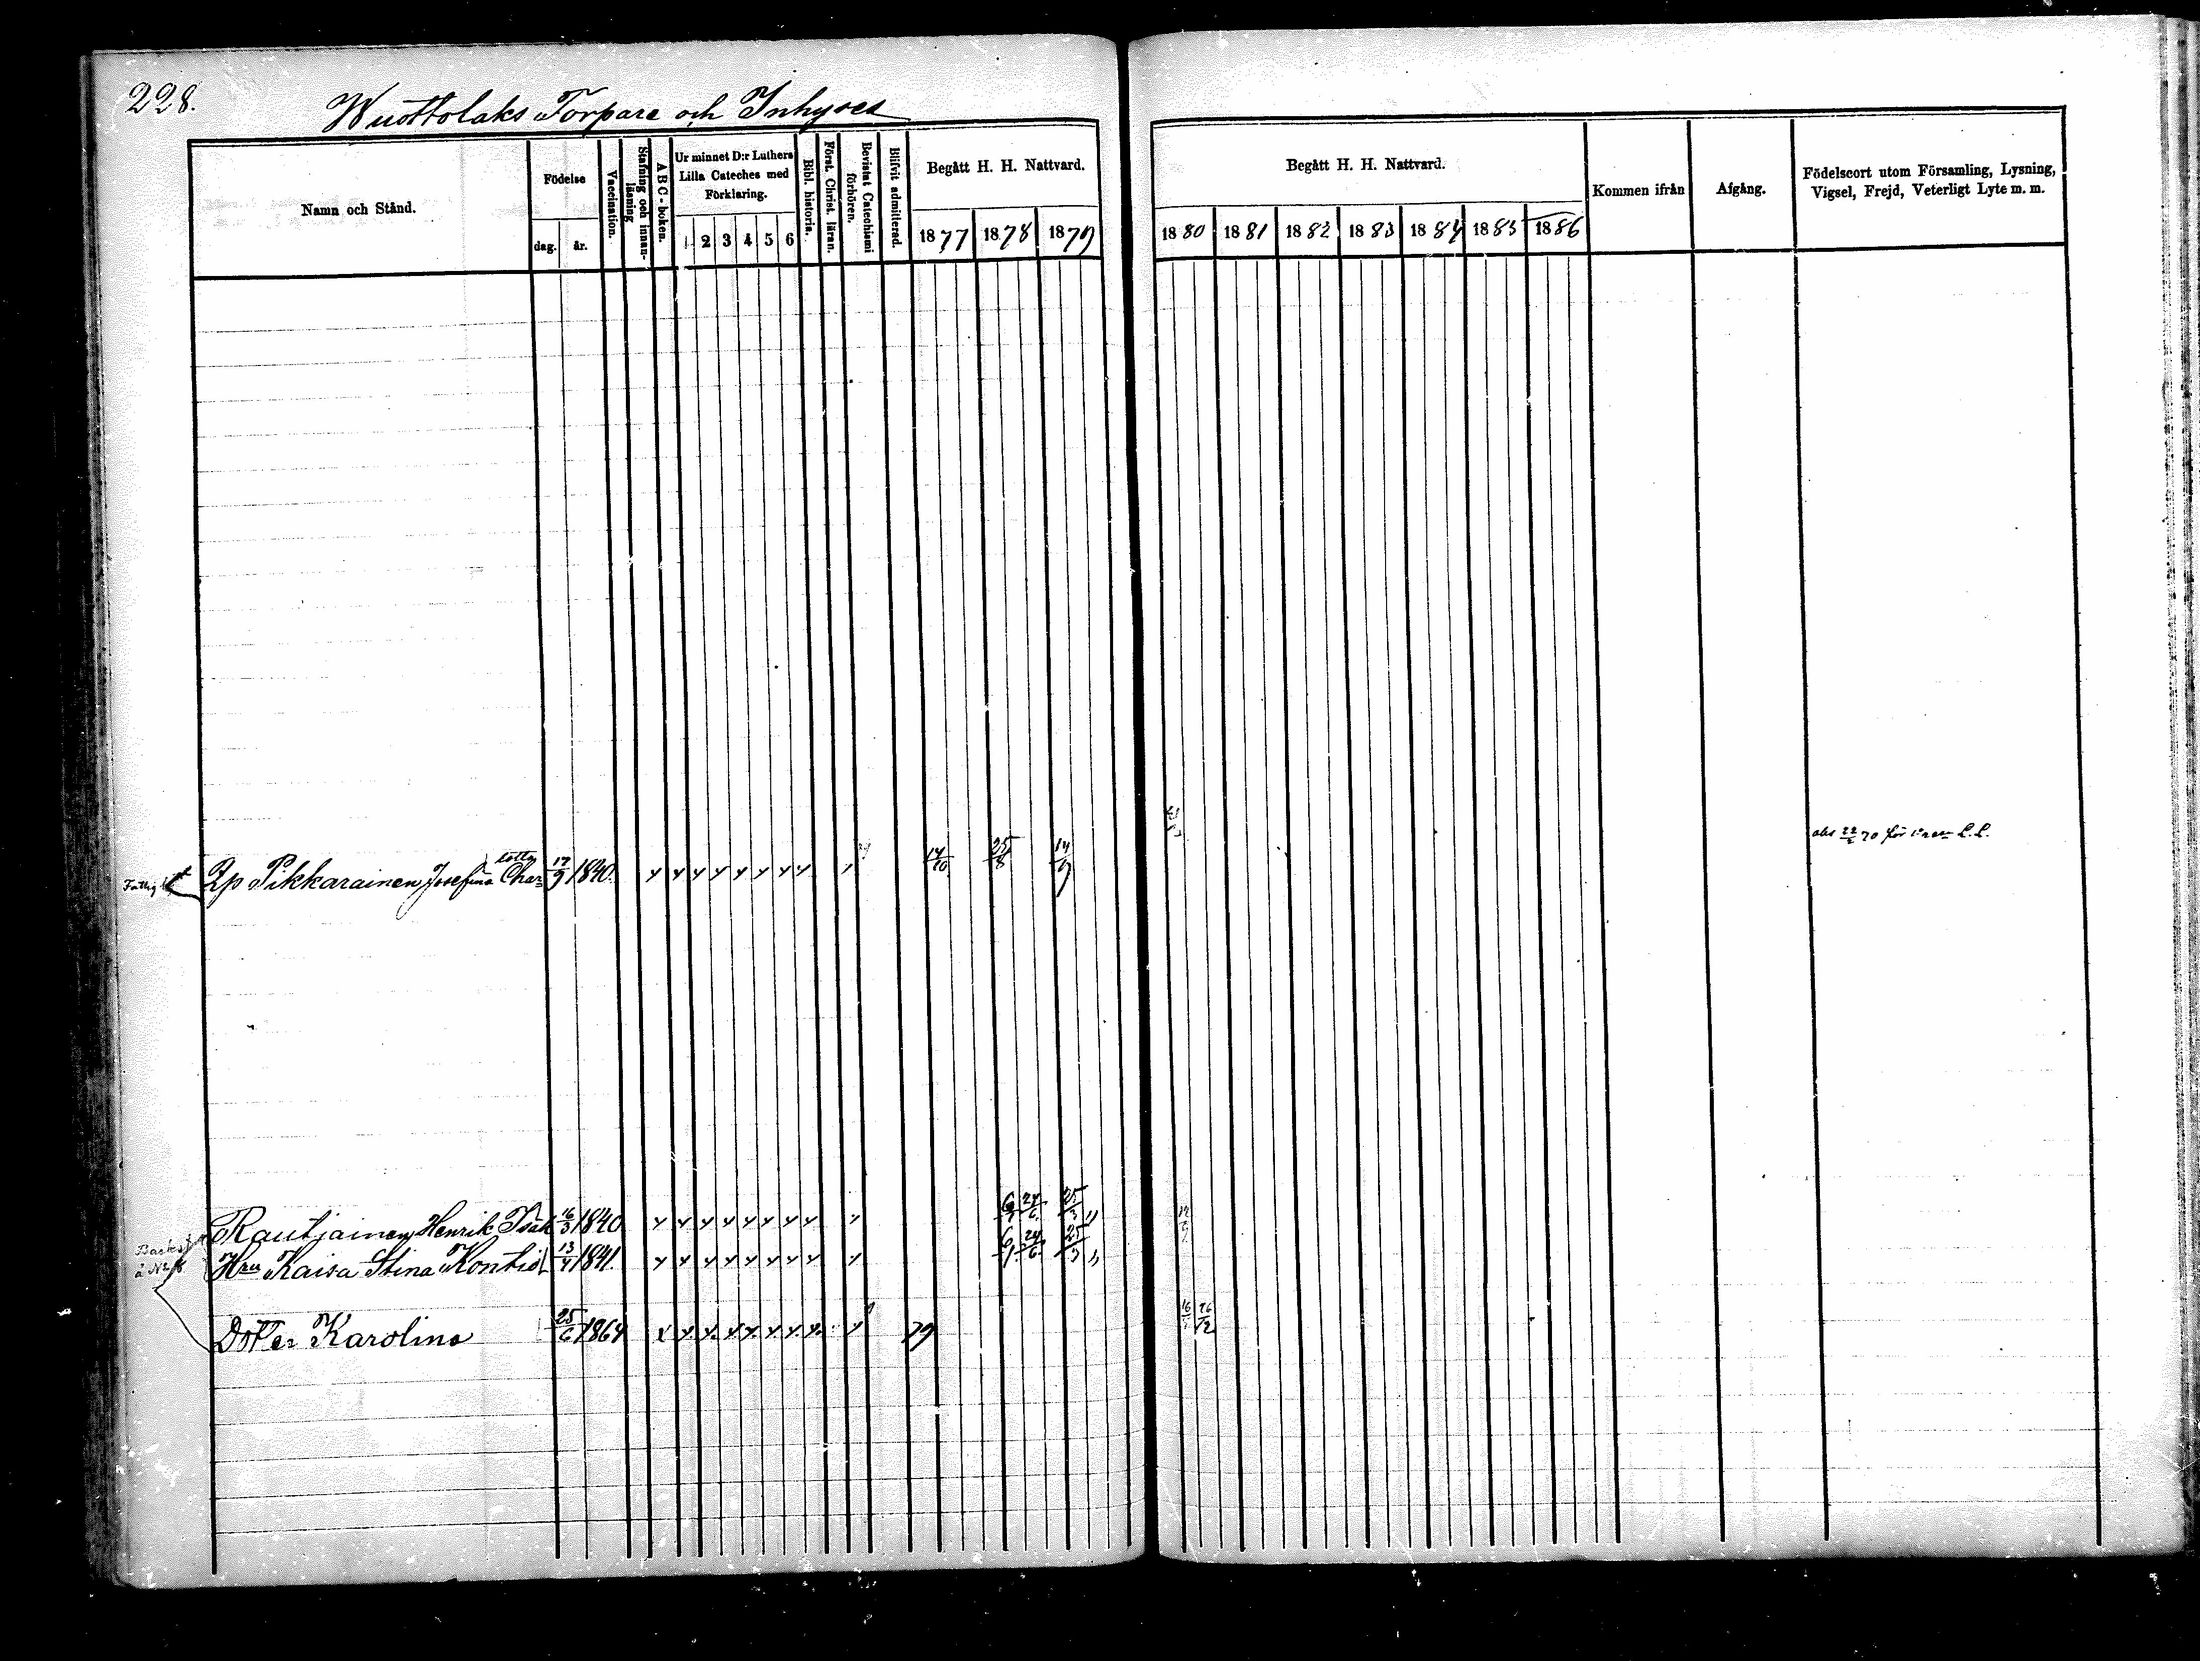 228.
Wuottolaks Torpare och Inhyses
Namn och Stånd.
Födelse
dag. år.
Vaccination.
Stafning och innan-läsning
A B C - boken.
Ur minnet D:r Luthers Lilla Cateches med Förklaring.
1 2 3 4 5 6
Bibl. historia.
Först. Christ. läran.
Bevistat Catechismi förhören.
Blifvit admitterad.
Begått H. H. Nattvard.
1877 1878 1879
Begått H. H. Nattvard.
1880 1881 1882 1883 1884 1885 1886
Kommen ifrån
Afgång.
Födelseort utom Församling, Lysning, Vigsel, Frejd, Veterligt Lyte m. m.
Pikkarainen Josefina Charlotta 17/9 1840. 14/10 25/8 14/9
Rautiainen Henrik Isak 16/3 1840 24/6 25/3
Hru Kaisa Stina Kontio 13/4 1841. 24/6 25/3
Dotter Karolina 25/6 1864 79